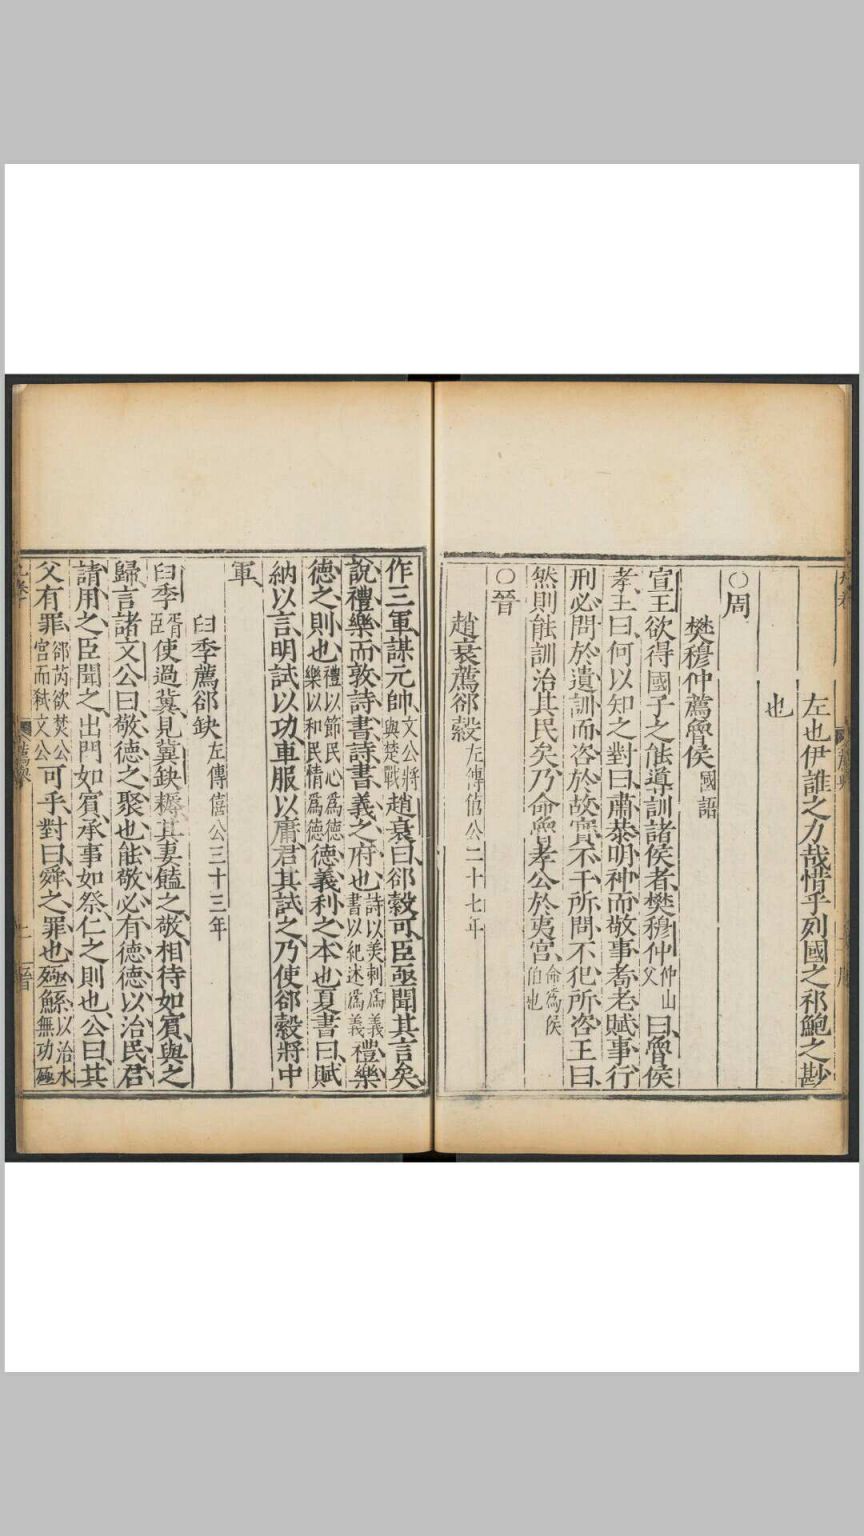 左也伊誰之力哉惜乎列國之祁鮑之尠
也
○周
樊穆仲薦魯侯國語
宣王欲得國子之能導訓諸侯者樊穆仲仲山父曰魯侯
孝王曰何以知之對曰肅恭明神而敬事耇老賦事行
刑必問於遺訓而咨於故實不干所問不犯所咨王曰
然則能訓治其民矣乃命魯孝公於夷宮命爲侯伯也
○晉
趙衰薦郤縠左傳僖公二十七年
作三軍謀元帥文公將與楚戰趙衰曰郤縠可臣亟聞其言矣
說禮樂而敦詩書詩書義之府也詩以美刺爲義書以紀述爲義禮樂
德之則也禮以節民心爲德樂以和民情爲德德義利之本也夏書曰賦
納以言明試以功車服以庸君其試之乃使郤縠將中
軍
臼季薦郤缺左傳僖公三十三年
臼季胥臣使過冀見冀缺耨其妻饁之敬相待如賓與之
歸言諸文公曰敬德之聚也能敬必有德德以治民君
請用之臣聞之出門如賓承事如祭仁之則也公曰其
父有罪郤芮欲焚公宮而弒文公可乎對曰舜之罪也殛鯀以治水無功殛